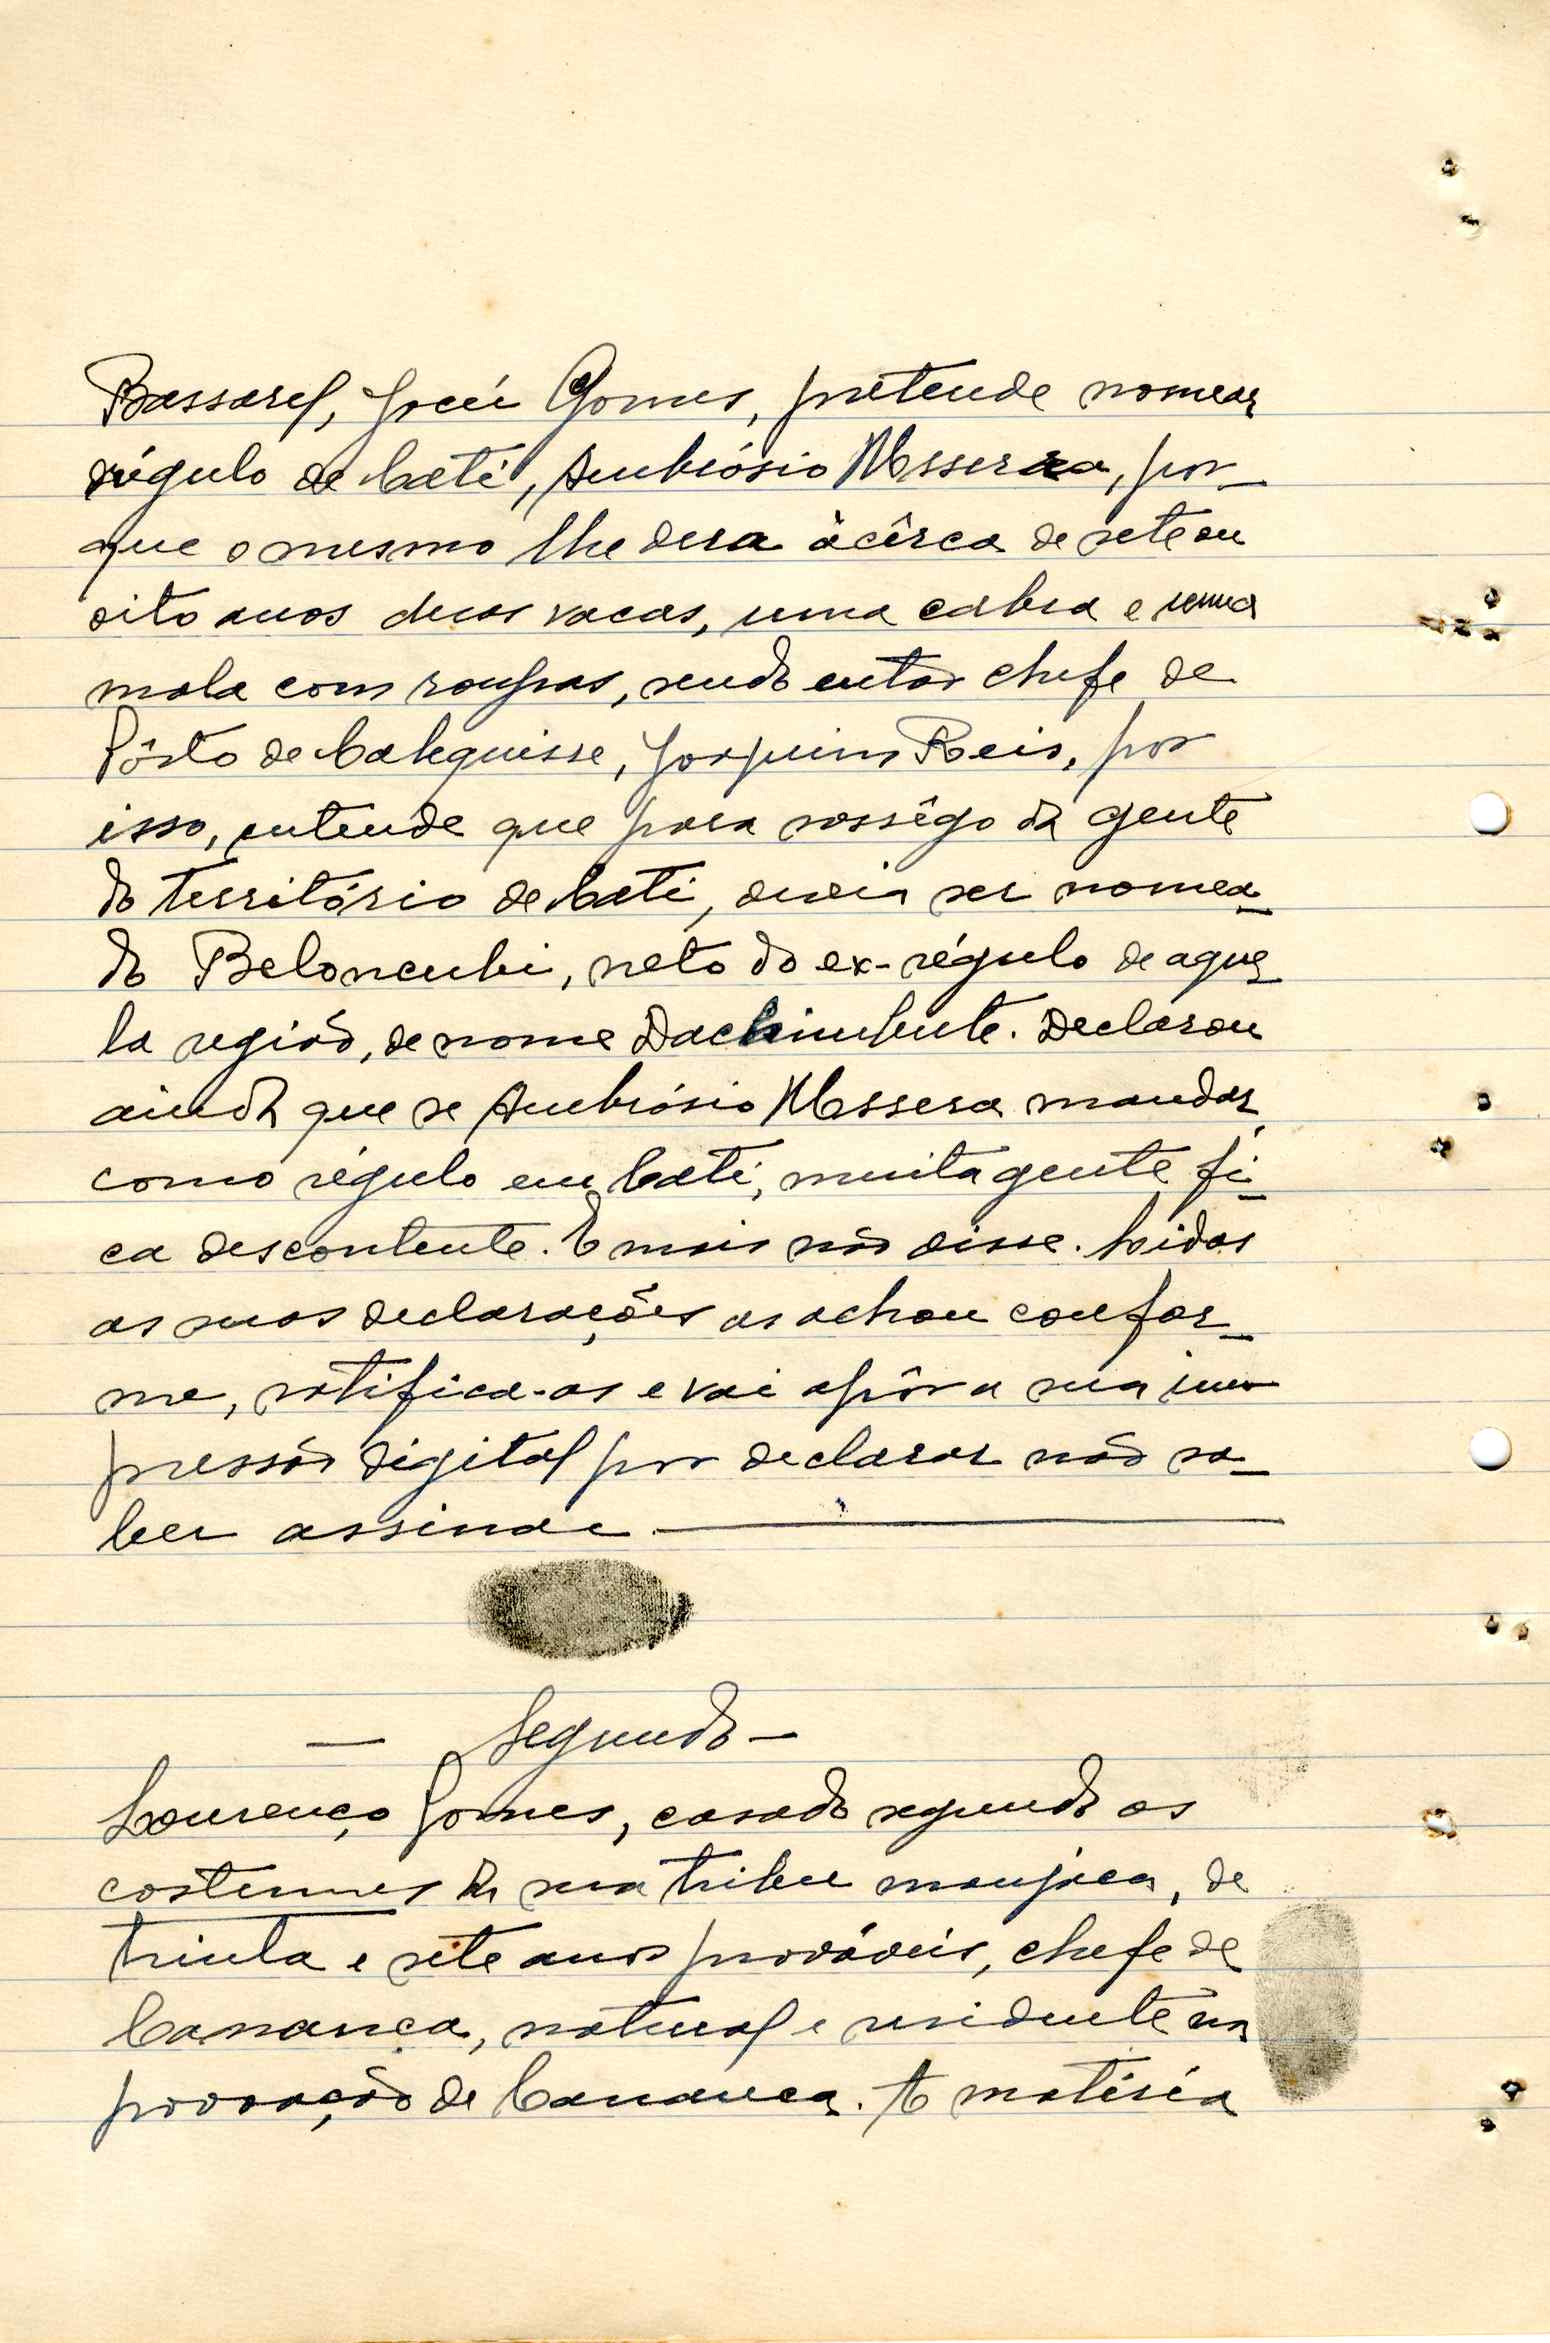 Bassarel, Joceí Gomes, pretende nomear
régulo de Catí, Ambrósio Massera, por-
que o mesmo lhe dera àcêrca de sete ou
oito anos duas vacas, uma cabra e uma
mala com roupas, sendo então chefe de
Pôsto de Calequisse, Joaquim Reis, por
isso, entende que para sossêgo da gente
do território de Catí, devia ser nomea-
do Beloncubi, neto do ex-régulo de aque-
la região, de nome Dachimbute. Declarou
ainda que se Ambrósio Massera mandar
como régulo em Catí, muita gente fi-
ca descontente. E mais não disse. Lidas
as suas declarações as achou confor-
me, ratifica-as e vai apôr a sua im-
pressão digital por declarar não sa-
ber assinar
— Segundo —
Lourenço Gomes, casado segundo os
costumes da sua tribu manjaca, de
trinta e sete anos prováveis, chefe de
Cananca, natural e residente na
povoação de Cananca. À matéria